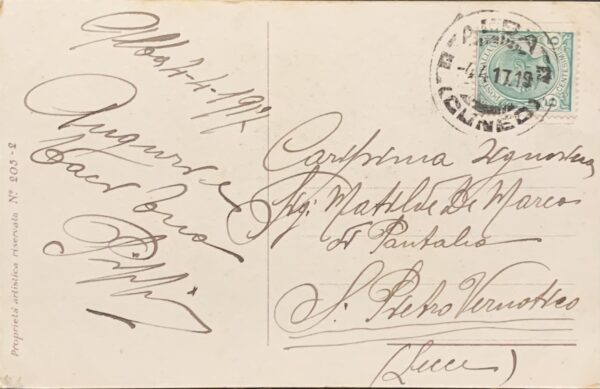 Alba 4-4-1917
Auguri e
Baci tuo
Pippi
Proprietà artistica riservata Nº 203-2
ALBA
-4.4.17.19
(CUNEO)
Carissima Signorina
Sig. Matilde De Marco
di Pantaleo
S. Pietro Vernotico
(Lecce)